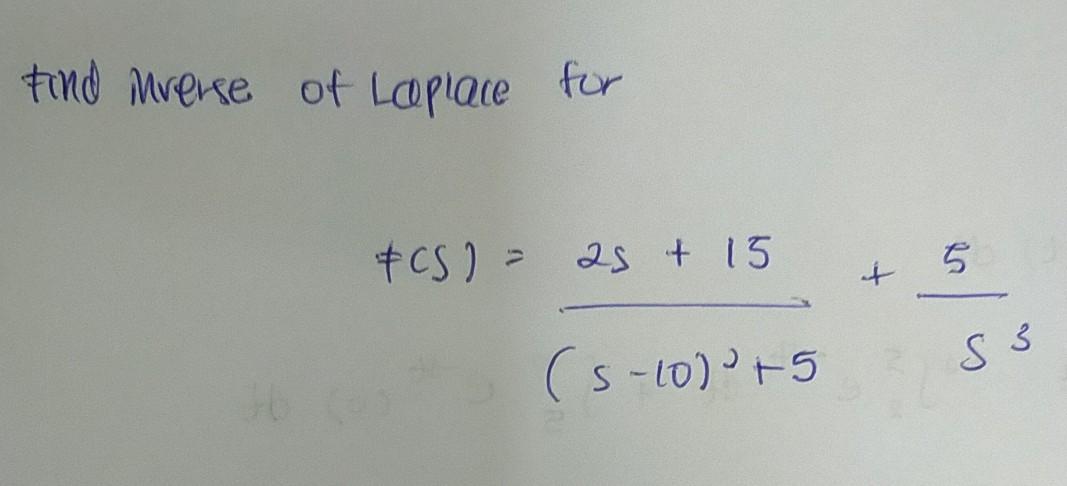 Find inverse of Laplace for
f(s) = 2s + 15 + 5
(s-10)² + 5 s³